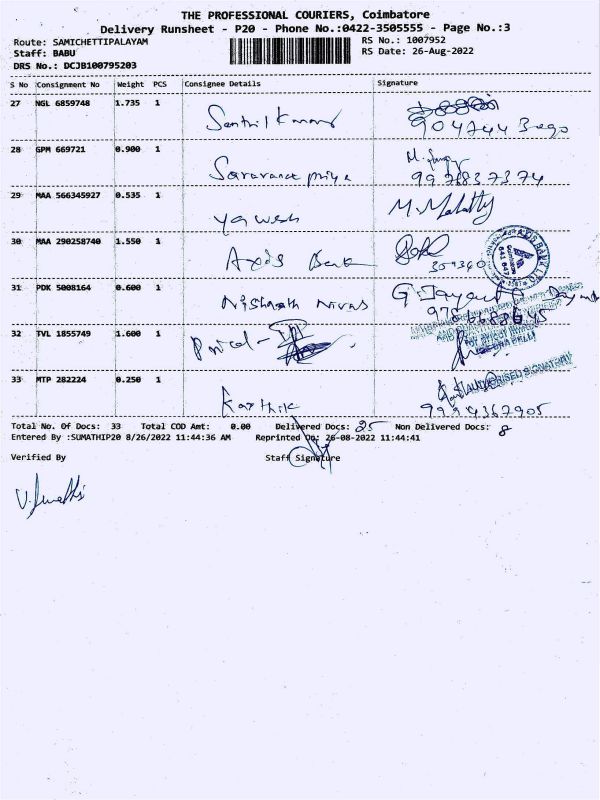 THE PROFESSIONAL COURIERS, Coimbatore
Delivery Runsheet - P20 - Phone No.:0422-3505555 - Page No.:3
Route: SAMICHETTIPALAYAM
RS No.: 1007952
Staff: BABU
RS Date: 26-Aug-2022
DRS No.: DCJB100795203
S No Consignment No Weight PCS Consignee Details Signature
27 NGL 6859748 1.735 1 Senthil Kumar
28 GPM 669721 0.900 1 Saravana priya
9978837374
29 MAA 566345927 0.535 1 yawesh
30 MAA 290258740 1.550 1 Axis Bank
31 PDK 5008164 0.600 1 Nishanth Nivas
32 TVL 1855749 1.600 1
33 MTP 282224 0.250 1 Karthik
9994367905
Total No. Of Docs: 33 Total COD Amt: 0.00 Delivered Docs: 25 Non Delivered Docs: 8
Entered By :SUMATHIP20 8/26/2022 11:44:36 AM Reprinted On: 26-08-2022 11:44:41
Verified By Staff Signature